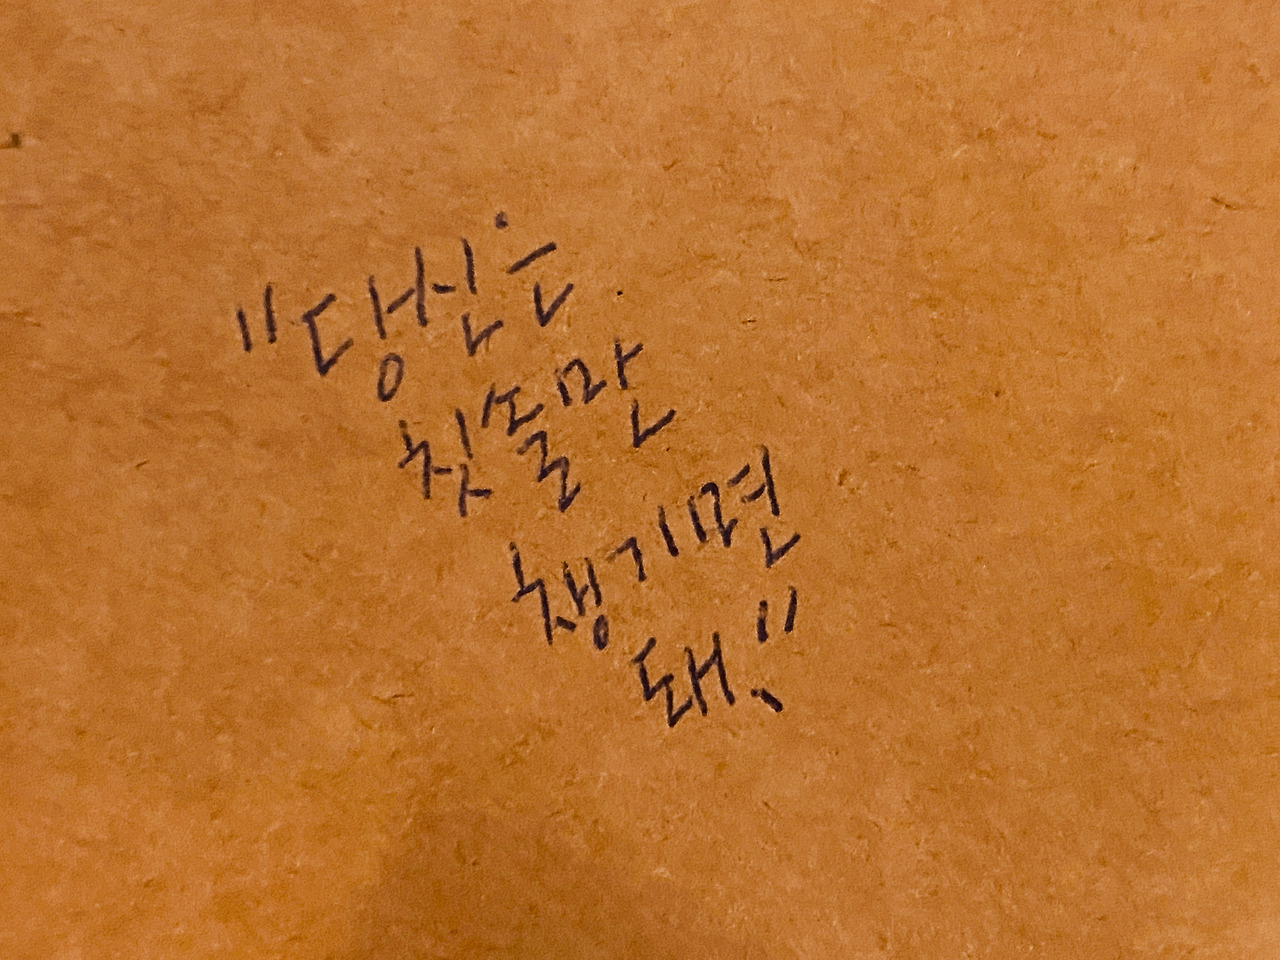 "당신은
칫솔만
챙기면
돼."